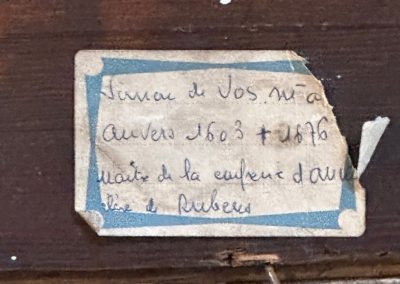 Simon de Vos né à
anvers 1603 + 1876
maître de la confrerie d'anv
élève de Rubens